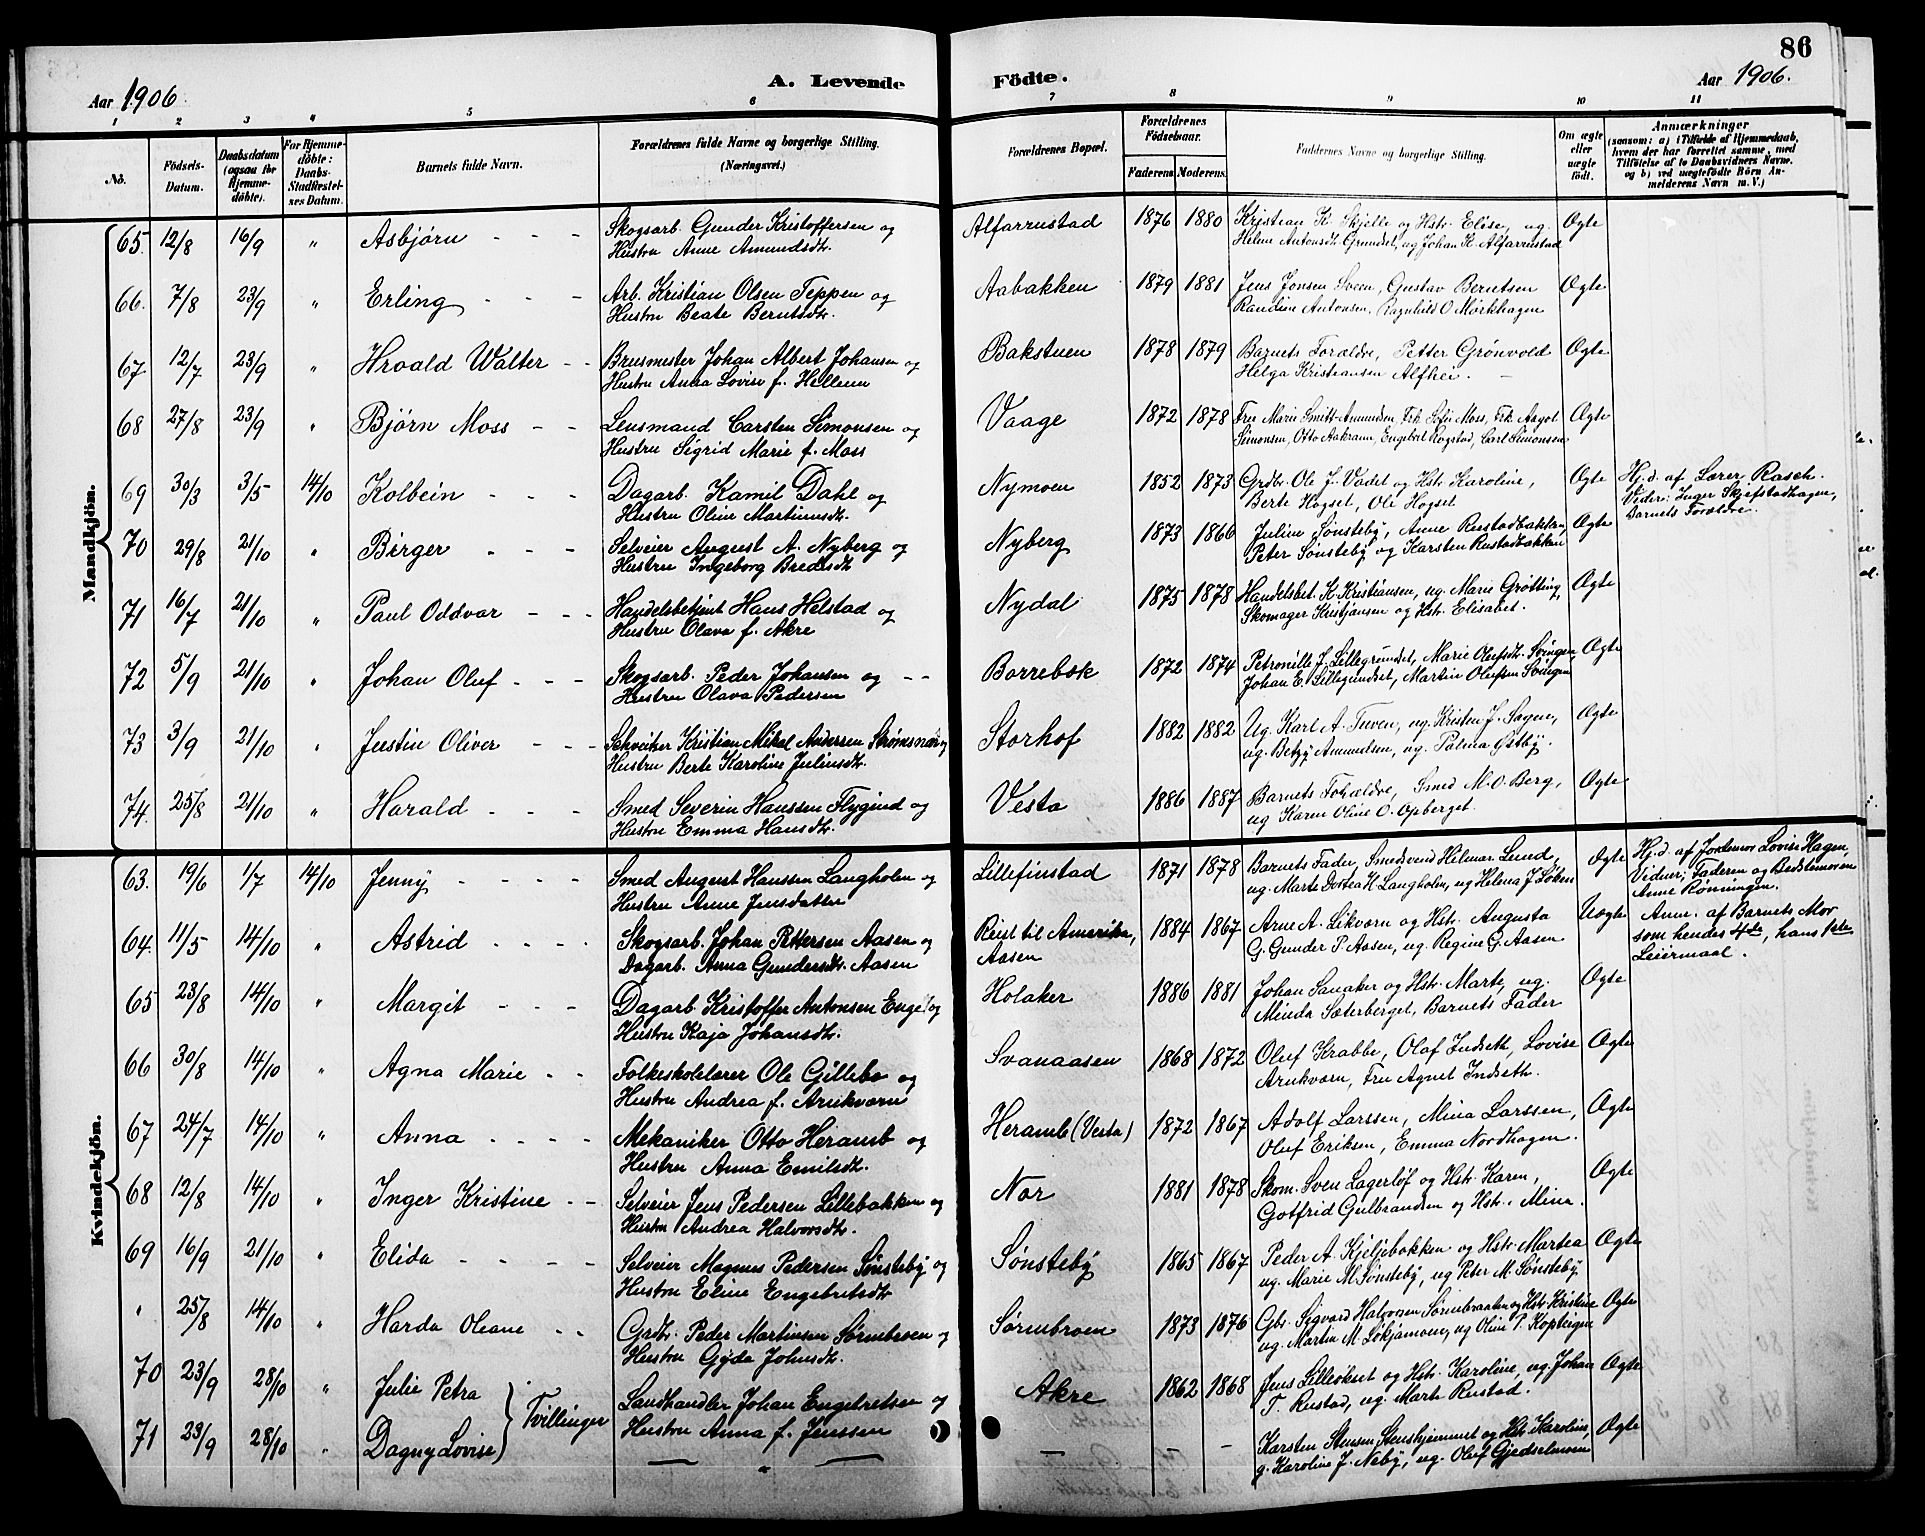 86
Aar 1906.
A. Levende
Födte.
Aar 1906.
1 2 3 4 5 6 7 8 9 10 11
No.
Födsels-
Datum.
Daabsdatum
(ogsaa for
Hjemme-
döbte).
For Hjemme-
döbte:
Daabs-
Stadfæstel-
ses Datum.
Barnets fulde Navn.
Forældrenes fulde Navne og borgerlige Stilling.
(Næringsvei.)
Forældrenes Bopæl.
Forældrenes
Födselsaar.
Faderens. Moderens.
Faddernes Navne og borgerlige Stilling.
Om ægte
eller
uægte
födt.
Anmærkninger
(saasom: a) i Tilfælde af Hjemmedaab,
hvem der har forrettet samme, med
Tilföielse af to Daabsvidners Navne.
og b) ved uægtefödte Börn An-
melderens Navn m. V.)
Mandkjön.
65. 12/8 16/9 " Asbjørn - - - Skogsarb. Gunder Kristoffersen og Alfarrustad 1876 1880 Kristian K. Skjelle og Hstr. Elise, ug. Ægte
Hustru Anne Amundsdtr. Helene Antonsdt. Grundset, ug Johan K. Alfarrustad
66. 7/8 23/9 " Erling - - - Arb. Kristian Olsen Teppen og Aabakken 1879 1881 Jens Jonsen Sveen, Gustav Berntsen Ægte
Hustru Beate Berntsdtr. Randine Antonsen, Ragnhild O Mørkhagen
67 12/7 23/9 " Hroald Walter - - Brusmester Johan Albert Johansen og Bakstuen 1878 1879 Barnets Forældre, Petter Grønvold Ægte
Hustru Anna Lovise f. Hellum Helga Kristiansen Alfhei. -
68 27/8 23/9 " Bjørn Moss - - Lensmand Carsten Simonsen og Vaage 1872 1878 Fru Marie Smitt-Amundsen, Frk. Sofie Moss, Frk. Aagot Ægte
Hustru Sigrid Marie f. Moss Simonsen, Otto Aakrann, Engebret Rogstad, Carl Simonsen
69 30/3 3/5 14/10 Kolbein - - - Dagarb. Kamil Dahl og Nymoen 1852 1873 Grdbr. Ole J. Vadet og Hstr. Karoline, Ægte Hj.d. af Lærer Rasch.
Hustru Oline Martinusdt. Berte Hogset, Ole Hogset Vidner: Inger Skjefstadhagen,
Barnets Forældre.
70 29/8 21/10 " Birger - - - Selveier August A. Nyberg og Nyberg 1873 1866 Juline Sønsteby, Anne Rustadbakken, Ægte
Hustru Ingeborg Bredesdt. Peter Sønsteby og Karsten Rustadbakken
71 16/7 21/10 " Paul Oddvar - - - Handelsbetjent Hans Helstad og Nydal 1875 1878 Handelsbet. K. Kristiansen, ug. Marie Grøtting, Ægte
Hustru Olava f. Akre Skomager Kristjansen og Hstr. Elisabet.
72 5/9 21/10 " Johan Oluf - - - Skogsarb. Peder Johansen og - - Borrebæk 1872 1874 Petronille J. Lillegrundset, Marie Olufsdt. Svingen, Ægte
Hustru Olava Pedersen Johan E. Lillegundset, Martin Olufsen Svingen
73 3/9 21/10 " Justin Oliver - - - Schveitzer Kristian Mikal Andersen Strømsnæs og Storhof 1882 1882 Ug. Karl A. Tuven, ug. Kristen J. Sagen, Ægte
Hustru Berte Karoline Juliusdt. ug. Betzy Amundsen, ug. Palma Østby.
74. 25/8 21/10 " Harald - - - Smed Severin Hanssen Flygind og Vesta 1886 1887 Barnets Forældre, Smed M. O. Berg, Ægte
Hustru Emma Hansdtr. ug Karen Oline O. Opberget.
Kvindekjön.
63. 19/6 1/7 14/10 Jenny - - - - Smed August Hanssen Langholen og Lillefinstad 1871 1878 Barnets Fader, Smedsvend Hilmar Lund, Ægte Hj.d. af Jordemor Lovise Hagen,
Hustru Anne Jensdatter ug. Marte Dortea H. Langholm, ug Helena J. Løken Vidner: Faderen og Bedstemoren
Anne Rønningen.
64. 11/5 14/10 " Astrid - - - - Skogsarb. Johan Pettersen Aasen og Reist til Amerika, 1884 1867 Arne A. Likvern og Hstr. Augusta Uægte Anm. af Barnets Mor
Dagarb. Anna Gundersdtr. Aasen Aasen G. Gunder P. Aasen, ug. Regine G. Aasen som hendes 4de, hans 1ste
Leiermaal.
65 23/8 14/10 " Margit - - - Dagarb. Kristoffer Antonsen Enge og Holaker 1886 1881 Johan Sanaker og Hstr. Marte, ug. Ægte
Hustru Kaja Johansdt. Minda Sæterberget, Barnets Fader
66 30/8 14/10 " Agna Marie - - Folkeskolelærer Ole Gillebo og Svanaasen 1868 1872 Oluf Krabbe, Olaf Indseth, Lovise Ægte
Hustru Andrea f. Arnkværn Arnkværn, Fru Agnet Indseth.
67 24/7 14/10 " Anna - - - - Mekaniker Otto Heramb og Heramb (Vesta) 1872 1867 Adolf Larssen, Mina Larssen, Ægte
Hustru Anna Emilsdt. Oluf Eriksen, Emma Nordhagen.
68 12/8 14/10 " Inger Kristine - - Selveier Jens Pedersen Lillebakken og Nor 1881 1878 Skom. Sven Lagerløf og Hstr. Karen, Ægte
Hustru Andrea Halvorsdt. Gotfrid Gulbrandsen og Hstr. Mina.
69 16/9 21/10 " Elida - - - - Selveier Magnus Pedersen Sønsteby og Sønsteby 1865 1867 Peder A. Kjeljebakken og Hstr. Martea Ægte
Hustru Eline Engebretsdt ug. Marie M. Sønsteby, ug Peter M. Sønsteby
" 25/8 14/10 " Harda Oleane - - Grdbr. Peder Martinsen Sørnbroen og Sørnbroen 1873 1876 Gbr. Sigvard Halvorsen Sørnbraaten og Hstr. Kristine Ægte
Hustru Gyda Johnsdt. ug. Martin M. Løkjamoen, ug Oline P. Kopteigen
70 23/9 28/10 " Julie Petra Tvillinger Landhandler Johan Engebretsen og Akre 1862 1868 Jens Lilleøkset og Hstr. Karoline, ug. Johan Ægte
Hustru Anna f. Jenssen T. Rustad, ug. Marte Rustad.
71 23/9 28/10 " Dagny Lovise — " — — - - Karsten Stensen Stenshjemmet og Hstr. Karoline, Ægte
g. Karoline J. Neby, ug. Oluf Gjedselmoen